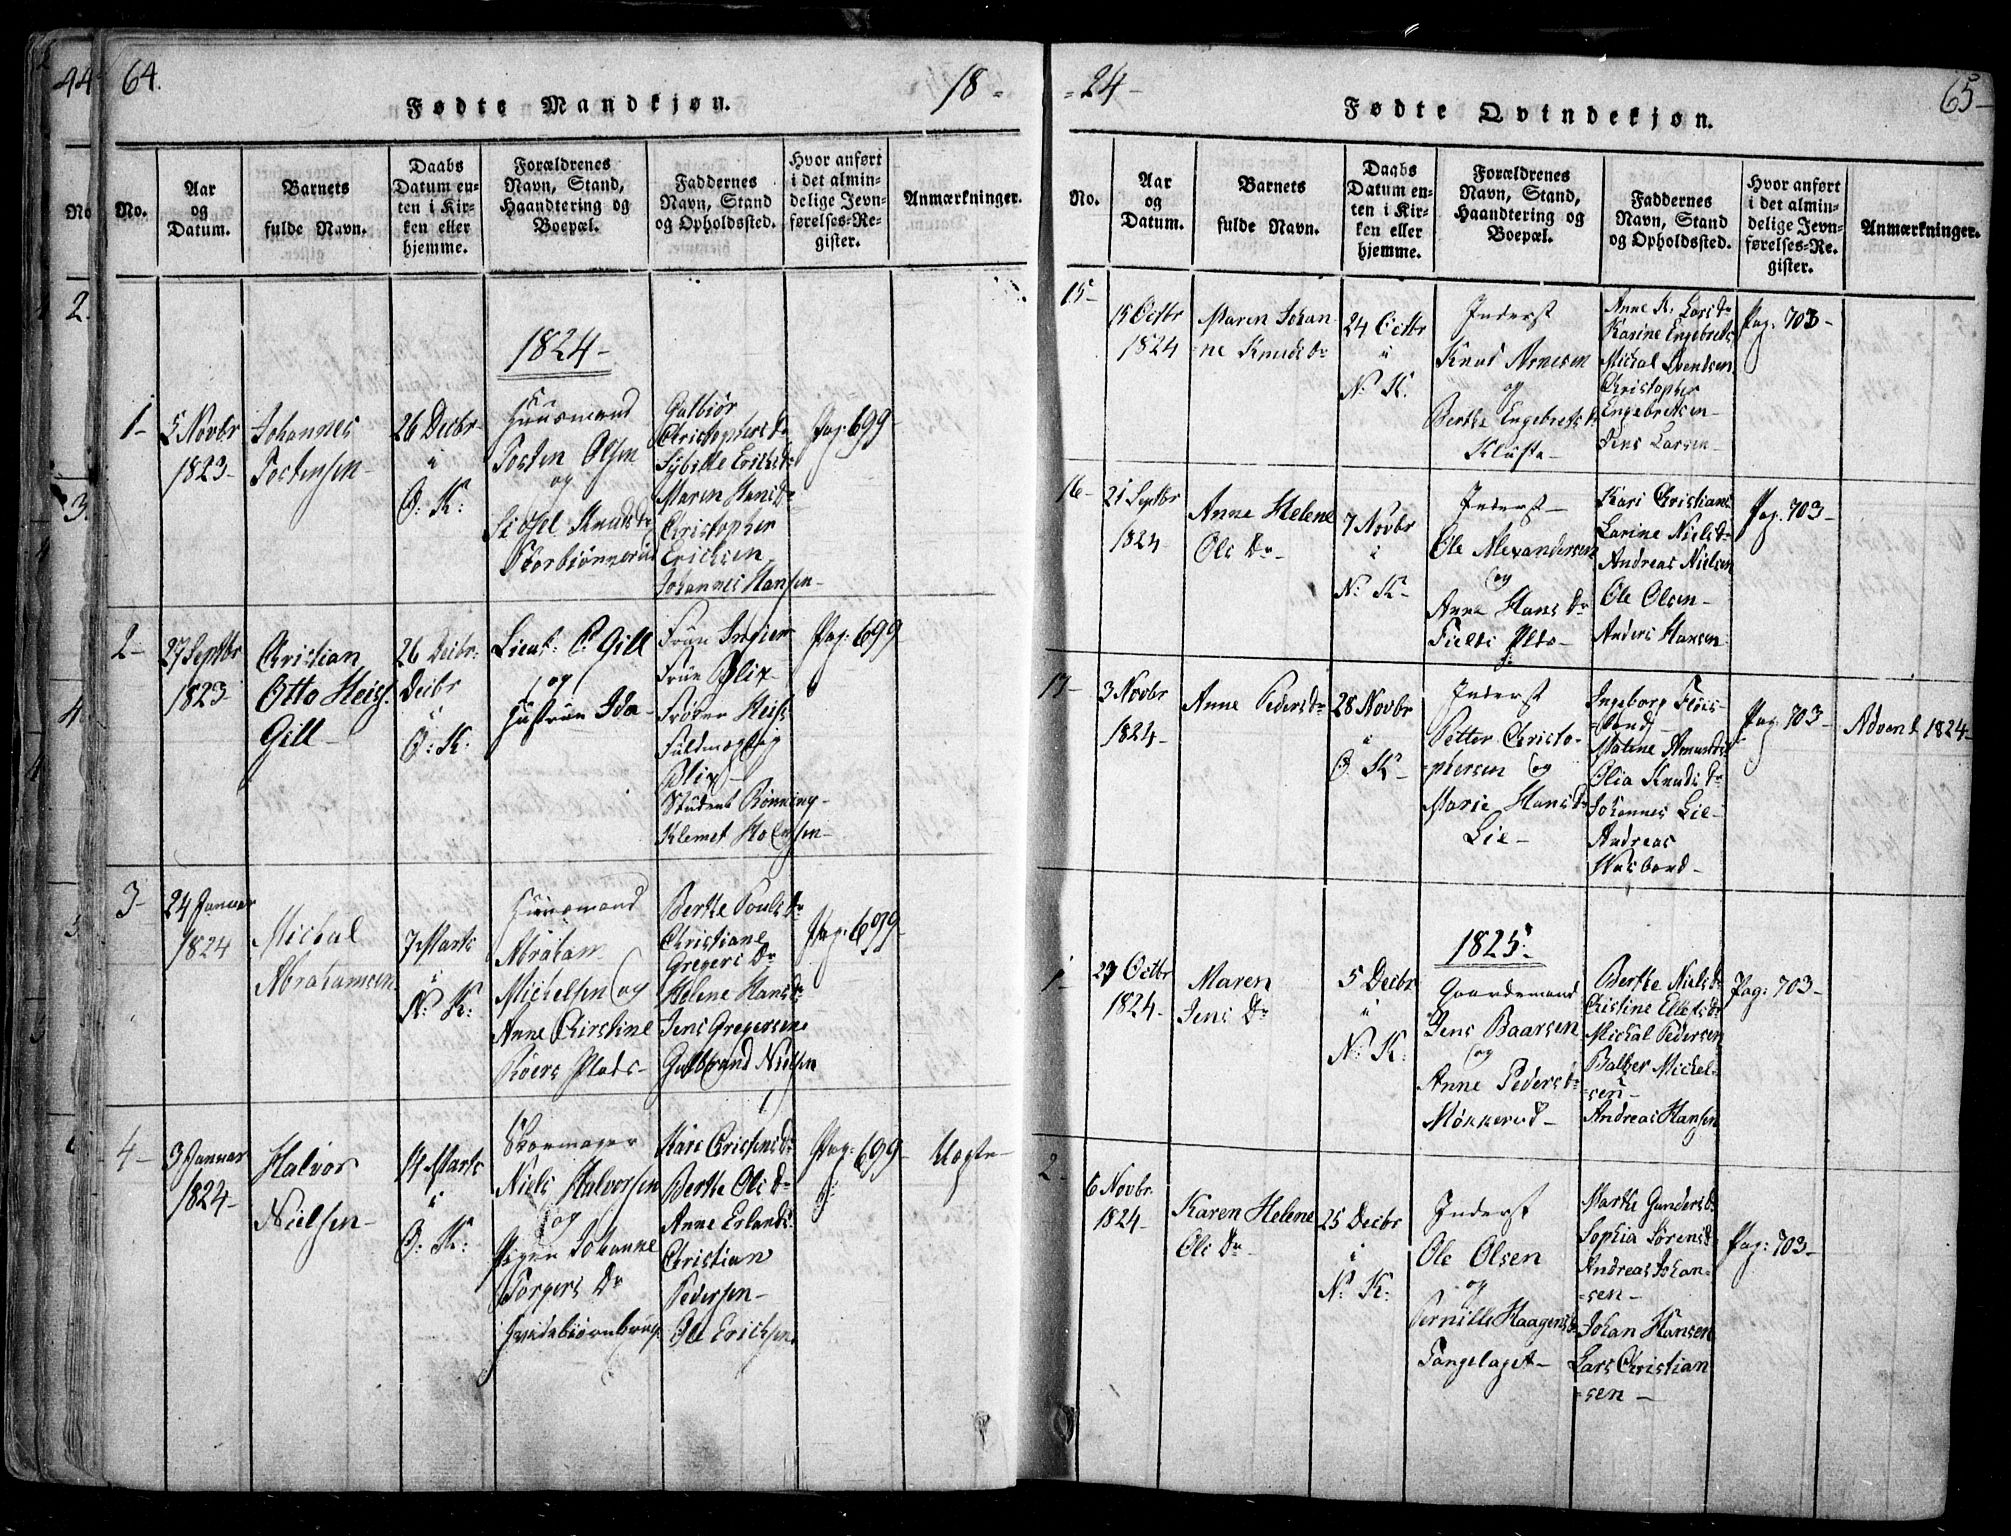 64.
Fødte Mandkjøn.
18-
No.
Aar og Datum.
Barnets fulde Navn.
Daabs Datum enten i Kirken eller hjemme.
Forældrenes Navn, Stand, Haandtering og Boepæl.
Faddernes Navn, Stand og Opholdssted.
Hvor anført i det almindelige Jevnførelses-Register.
Anmærkninger.
1824-
1-
5 Novbr
1823-
Johannes
Tostensen-
26 Decbr
i
O: K:
Huusmand
Tosten Olsen
og
Sidsel Knudsdr
Torbiørnerud
Gulbiør
Christophersdr
Sybille Erichsdr
Maren Hansdr
Christopher
Erichsen
Johannes Hansen-
Pag: 699-
2-
27 Septbr
1823-
Christian
Otto Heis
Gill-
26 Decbr:
Decbr
i
O: K:
Lieut: C: Gill
og
Hustrue Ida-
Frue Ingier
Frue Blix-
Frøken Heis
Fuldmægtig
Blix-
Student Rønning-
Klemet Holmsen-
Pag: 699
3-
24 Januar
1824
Michal
Abrahamsen
7 Marts
i
N: K:
Huusmand
Abraham
Michelsen og
Anne Chirstine
Røers Plads-
Berthe Pouls Dr
Christiane
Gregers Dr
Helene Hansdr
Jens Gregersen
Gulbrand Nielsen
Pag: 699
4-
3 Januar
1824-
Halvor
Nielsen-
14 Marts
i
O: K:
Skoemager
Niels Halvorsen
og
Pigen Johanne
Torgers Dr
Hvidebiørnbrug
Kari Christensdr
Berthe Ols Dr
Anne Erlands
Christian
Pedersen-
Ole Erichsen
Pag: 699-
Uægte-
-24-
Fødte Qvindekjøn.
65-
No.
Aar og Datum.
Barnets fulde Navn.
Daabs Datum enten i Kirken eller hjemme.
Forældrenes Navn, Stand, Haandtering og Boepæl.
Faddernes Navn, Stand og Opholdssted.
Hvor anført i det almindelige Jevnførelses-Register.
Anmærkninger.
15-
15 Octbr
1824
Maren Johan
-ne Knudsdr
24 Octbr
i
N: K:
Inderst
Knud Arnesen
og
Berthe Engebretsdr
Kløfta-
Anne K. Larsdr
Karine Engebretsdr
Michal Svendsen
Christopher
Engebretsen-
Jens Larsen-
Pag: 703-
16-
21 Septbr
1824-
Anne Helene
Ols Dr-
7 Novbr
i
N: K-
Inderst-
Ole Alexandersen
og
Anne Hans Dr
Kari Christians
Larine Nielsdr
Andreas Nielsen
Ole Olsen-
Anders Hansen-
Pag. 703-
17-
3 Novbr
1824-
Anne Pedersdr
28 Novbr
i
O. K-
Inderst
Petter Christo-
-phersen og
Marie Hansdr
Lie-
Ingeborg
Maline Amundsdr
Olia Knudsdr
Johannes Lie-
Andreas
Husbond-
Pag: 703-
Advent 1824-
1825.
1-
27 Octbr
1824-
Maren
Jens Dr
5 Decbr
i
N: K:
Gaardemand
Jens Baarsen
og
Anne Pedersdr
Møkkerud-
Berthe Nielsdr
Christine Ellefsdr
Michal Pedersen
Baltzer Michel-
-sen-
Andreas Hansen
Pag: 703-
2-
6 Novbr
1824-
Karen Helene
Ols Dr-
25 Decbr
i
N: K:
Inderst
Ole Olsen
og
Pernille Haagensdr
Tangelaget-
Marthe Gundersdr
Sophia Sørensdr
Andreas Johan-
-sen-
Johan Hansen
Lars Christian
-sen-
Pag: 703-